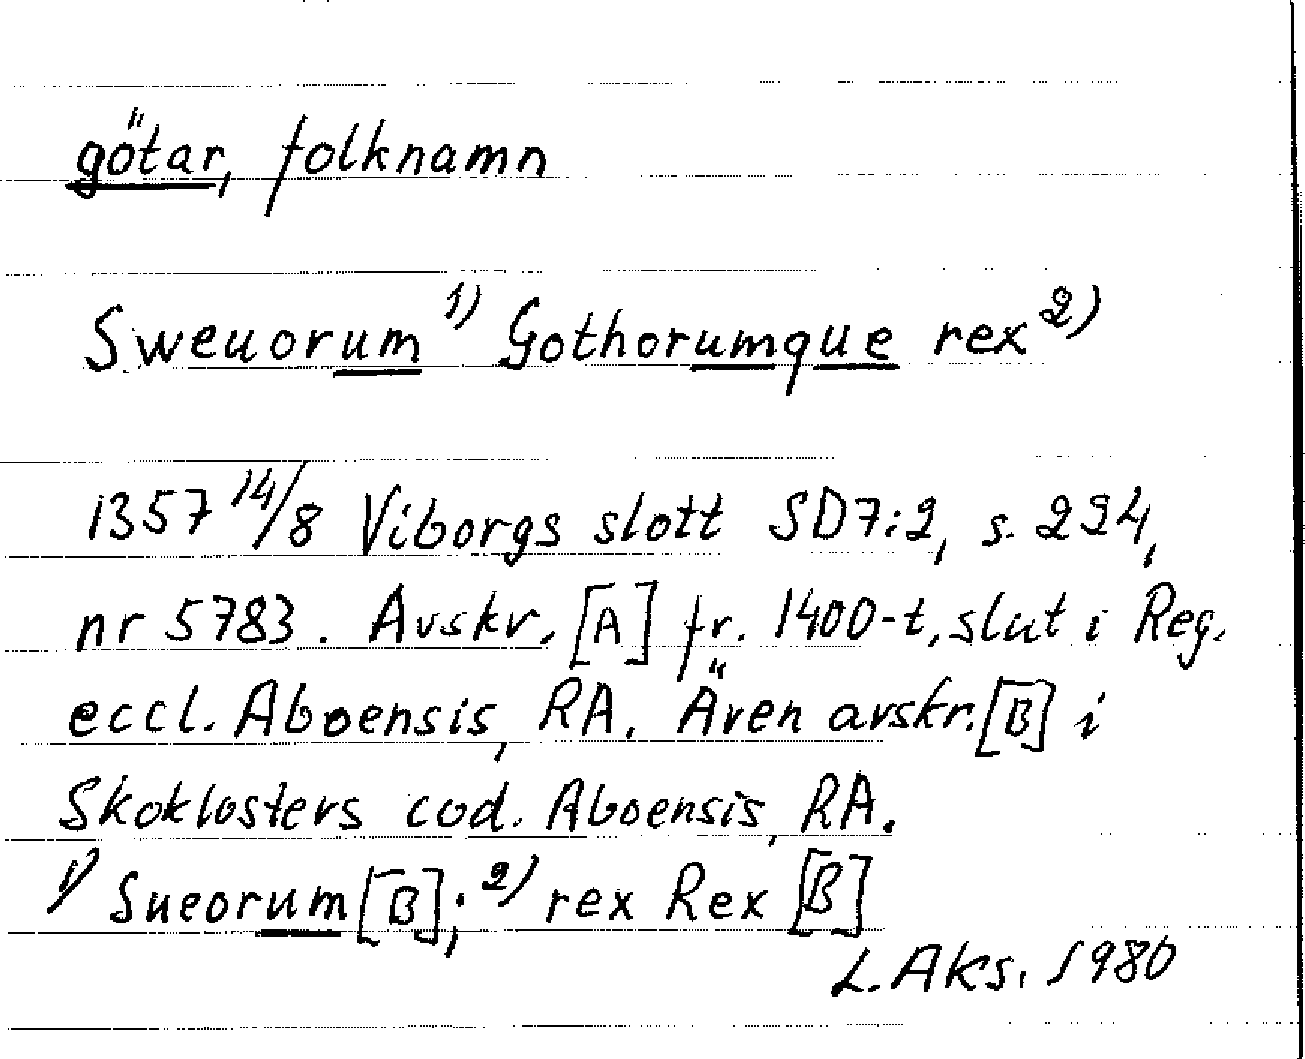 götar, folknamn
Sweuorum 1) Gothorumque rex 2)
1357 14/8 Viborgs slott SD7:2, s. 294,
nr 5783. Avskr. [A] fr. 1400-t, slut i Reg.
eccl. Aboensis, RA. Även avskr. [B] i
Skoklosters cod. Aboensis, RA.
1) Sueorum [B]; 2) rex Rex [B]
L. Aks. 1980